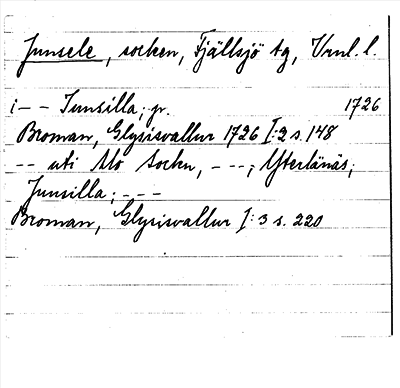 Junsele, socken, Fjällsjö tg, Vrnl. l.
i - - Junsilla; gr. 1726
Broman, Glysisvallur 1726 I:2 s. 148
-- uti Mo Socken, - --; Ytterlänäs;
Junsilla; - - -
Broman, Glysisvallur I:3 s. 220